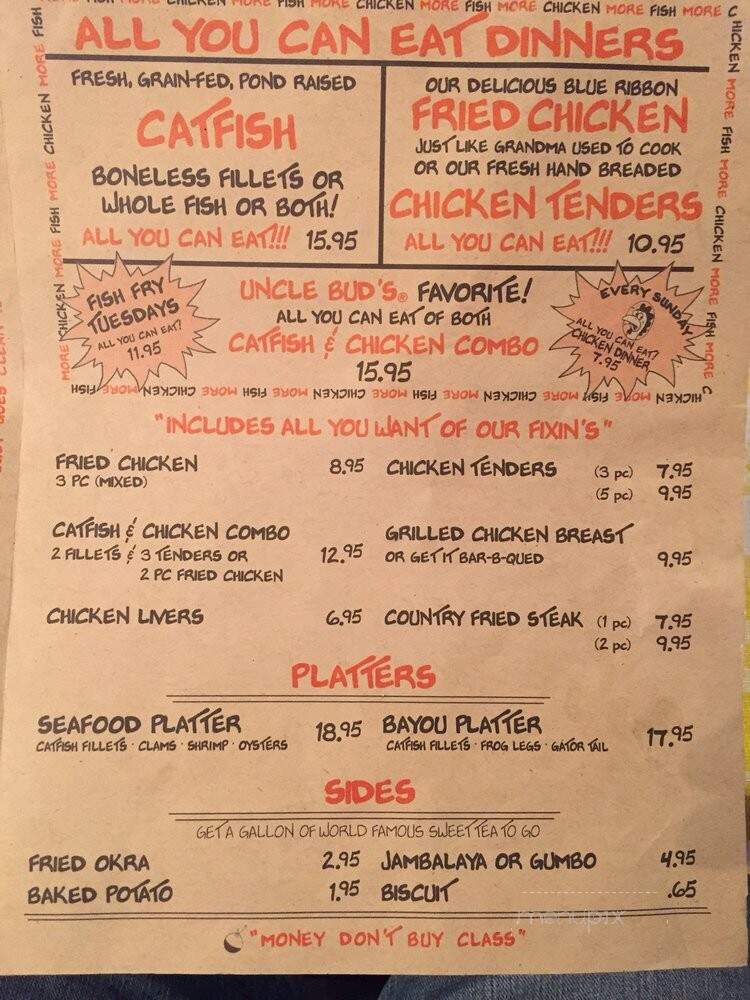 CHICKEN MORE FISH MORE CHICKEN MORE FISH MORE CHICKEN MORE FISH MORE
ALL YOU CAN EAT DINNERS
FRESH, GRAIN-FED, POND RAISED
CATFISH
BONELESS FILLETS OR
WHOLE FISH OR BOTH!
ALL YOU CAN EAT!!! 15.95
OUR DELICIOUS BLUE RIBBON
FRIED CHICKEN
JUST LIKE GRANDMA USED TO COOK
OR OUR FRESH HAND BREADED
CHICKEN TENDERS
ALL YOU CAN EAT!!! 10.95
FISH MORE CHICKEN MORE FISH MORE CHICKEN MORE
CHICKEN MORE FISH MORE CHICKEN MORE FISH MORE C
FISH FRY
TUESDAYS
ALL YOU CAN EAT?
11.95
UNCLE BUD'S® FAVORITE!
ALL YOU CAN EAT OF BOTH
CATFISH & CHICKEN COMBO
15.95
EVERY SUNDAY
ALL YOU CAN EAT?
CHICKEN DINNER
7.95
HICKEN MORE FISH MORE CHICKEN MORE FISH MORE CHICKEN MORE FISH MORE CHICKEN MORE FISH
"INCLUDES ALL YOU WANT OF OUR FIXIN'S"
FRIED CHICKEN 8.95
3 PC (MIXED)
CHICKEN TENDERS (3 pc) 7.95
(5 pc) 9.95
CATFISH & CHICKEN COMBO
2 FILLETS & 3 TENDERS OR 12.95
2 PC FRIED CHICKEN
GRILLED CHICKEN BREAST
OR GET IT BAR-B-QUED 9.95
CHICKEN LIVERS 6.95
COUNTRY FRIED STEAK (1 pc) 7.95
(2 pc) 9.95
PLATTERS
SEAFOOD PLATTER 18.95
CATFISH FILLETS · CLAMS · SHRIMP · OYSTERS
BAYOU PLATTER 17.95
CATFISH FILLETS · FROG LEGS · GATOR TAIL
SIDES
GET A GALLON OF WORLD FAMOUS SWEET TEA TO GO
FRIED OKRA 2.95
JAMBALAYA OR GUMBO 4.95
BAKED POTATO 1.95
BISCUIT .65
"MONEY DON'T BUY CLASS"